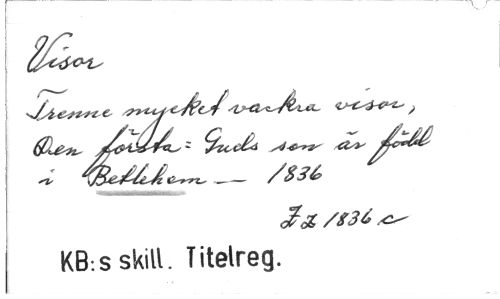 Visor
Trenne mycket vackra visor,
Den första: Guds son är född
i Betlehem — 1836
Zz 1836 c
KB:s skill. Titelreg.